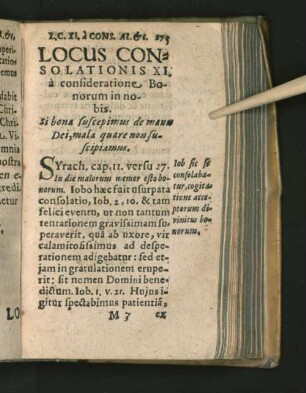 L.C. XI. à CONS. AL. &c. 275
LOCUS CON-
SOLATIONIS XI.
à consideratione Bo-
norum in no-
bis.
Si bona suscepimus de manu
Dei, mala quare non su-
scipiamus.
SYrach. cap. 11. versu 27.
In die malorum memor esto bo-
norum. Iobo hæc fuit usurpata
consolatio, Iob. 2, 10. & tam
felici eventu, ut non tantum
tentationem gravissimam su-
peraverit, quâ ab uxore, vir
calamitosissimus ad despe-
rationem adigebatur: sed et-
jam in gratulationem erupe-
rit; sit nomen Domini bene-
dictum. Iob. 1. v. 21. Hujus i-
gitur spectabimus patientiã,
M 7 ex
Iob sic se
consolaba-
tur, cogita-
tione acce-
ptorum di-
vinitus bo-
norum.
LO